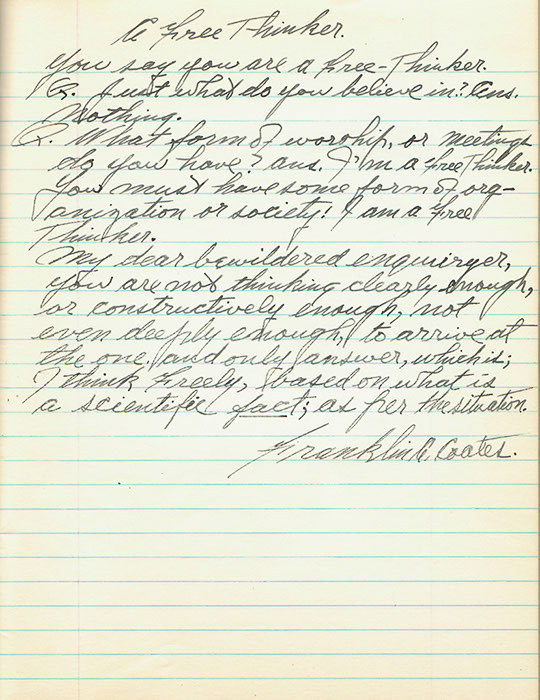 A Free Thinker.
You say you are a Free-Thinker.
Q. Just what do you believe in? Ans.
Nothing.
Q. What form of worship, or meetings
do you have? ans. I'm a Free Thinker.
You must have some form of org-
anization or society! I am a Free
Thinker.
My dear bewildered enquiryer,
you are not thinking clearly enough,
or constructively enough, not
even deeply enough, to arrive at
the one, and only answer, which is;
I think freely, based on what is
a scientific fact; as per the situation.
Franklin A. Coates.